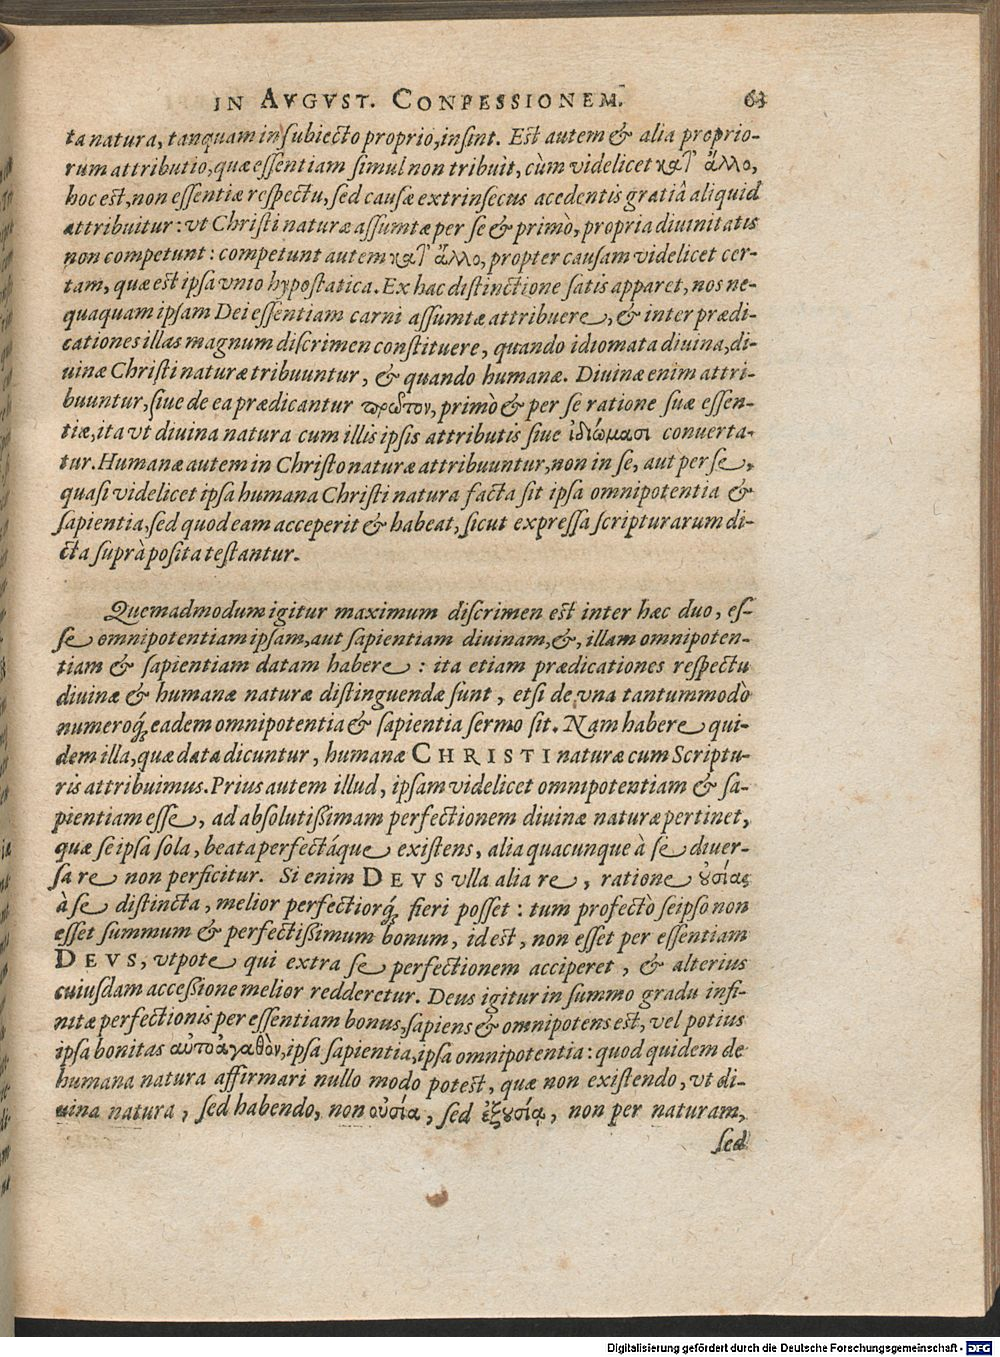 IN AVGVST. CONFESSIONEM. 63
ta natura, tanquam in subiecto proprio, insint. Est autem & alia proprio-
rum attributio, quæ essentiam simul non tribuit, cùm videlicet κατ' ἄλλο,
hoc est, non essentiæ respectu, sed causæ extrinsecus acedentis gratiâ aliquid
attribuitur: vt Christi naturæ assumtæ per se & primò, propria diuinitatis
non competunt: competunt autem κατ' ἄλλο, propter causam videlicet cer-
tam, quæ est ipsa vnio hypostatica. Ex hac distinctione satis apparet, nos ne-
quaquam ipsam Dei essentiam carni assumtæ attribuere, & inter prædi-
cationes illas magnum discrimen constituere, quando idiomata diuina, di-
uinæ Christi naturæ tribuuntur, & quando humanæ. Diuinæ enim attri-
buuntur, siue de ea prædicantur πρῶτον, primò & per se ratione suæ essen-
tiæ, ita vt diuina natura cum illis ipsis attributis siue ἰδιώμασι conuerta-
tur. Humanæ autem in Christo naturæ attribuuntur, non in se, aut per se,
quasi videlicet ipsa humana Christi natura facta sit ipsa omnipotentia &
sapientia, sed quod eam acceperit & habeat, sicut expressa scripturarum di-
cta suprà posita testantur.
Quemadmodum igitur maximum discrimen est inter hæc duo, es-
se omnipotentiam ipsam, aut sapientiam diuinam, &, illam omnipoten-
tiam & sapientiam datam habere: ita etiam prædicationes respectu
diuinæ & humanæ naturæ distinguendæ sunt, etsi de vna tantummodò
numeroq́; eadem omnipotentia & sapientia sermo sit. Nam habere qui-
dem illa, quæ data dicuntur, humanæ CHRISTI naturæ cum Scriptu-
ris attribuimus. Prius autem illud, ipsam videlicet omnipotentiam & sa-
pientiam esse, ad absolutißimam perfectionem diuinæ naturæ pertinet,
quæ seipsa sola, beata perfectáque existens, alia quacunque à se diuer-
sa re non perficitur. Si enim DEVS vlla alia re, ratione ȣ̓σίας
à se distincta, melior perfectiorq́; fieri posset: tum profectò seipso non
esset summum & perfectißimum bonum, id est, non esset per essentiam
DEVS, vtpote qui extra se perfectionem acciperet, & alterius
cuiusdam acceßione melior redderetur. Deus igitur in summo gradu infi-
nitæ perfectionis per essentiam bonus, sapiens & omnipotens est, vel potius
ipsa bonitas αὐτοἀγαθὸν, ipsa sapientia, ipsa omnipotentia: quod quidem de
humana natura affirmari nullo modo potest, quæ non existendo, vt di-
uina natura, sed habendo, non οὐσίᾳ, sed ἐξȣσίᾳ, non per naturam,
sed
Digitalisierung gefördert durch die Deutsche Forschungsgemeinschaft - DFG